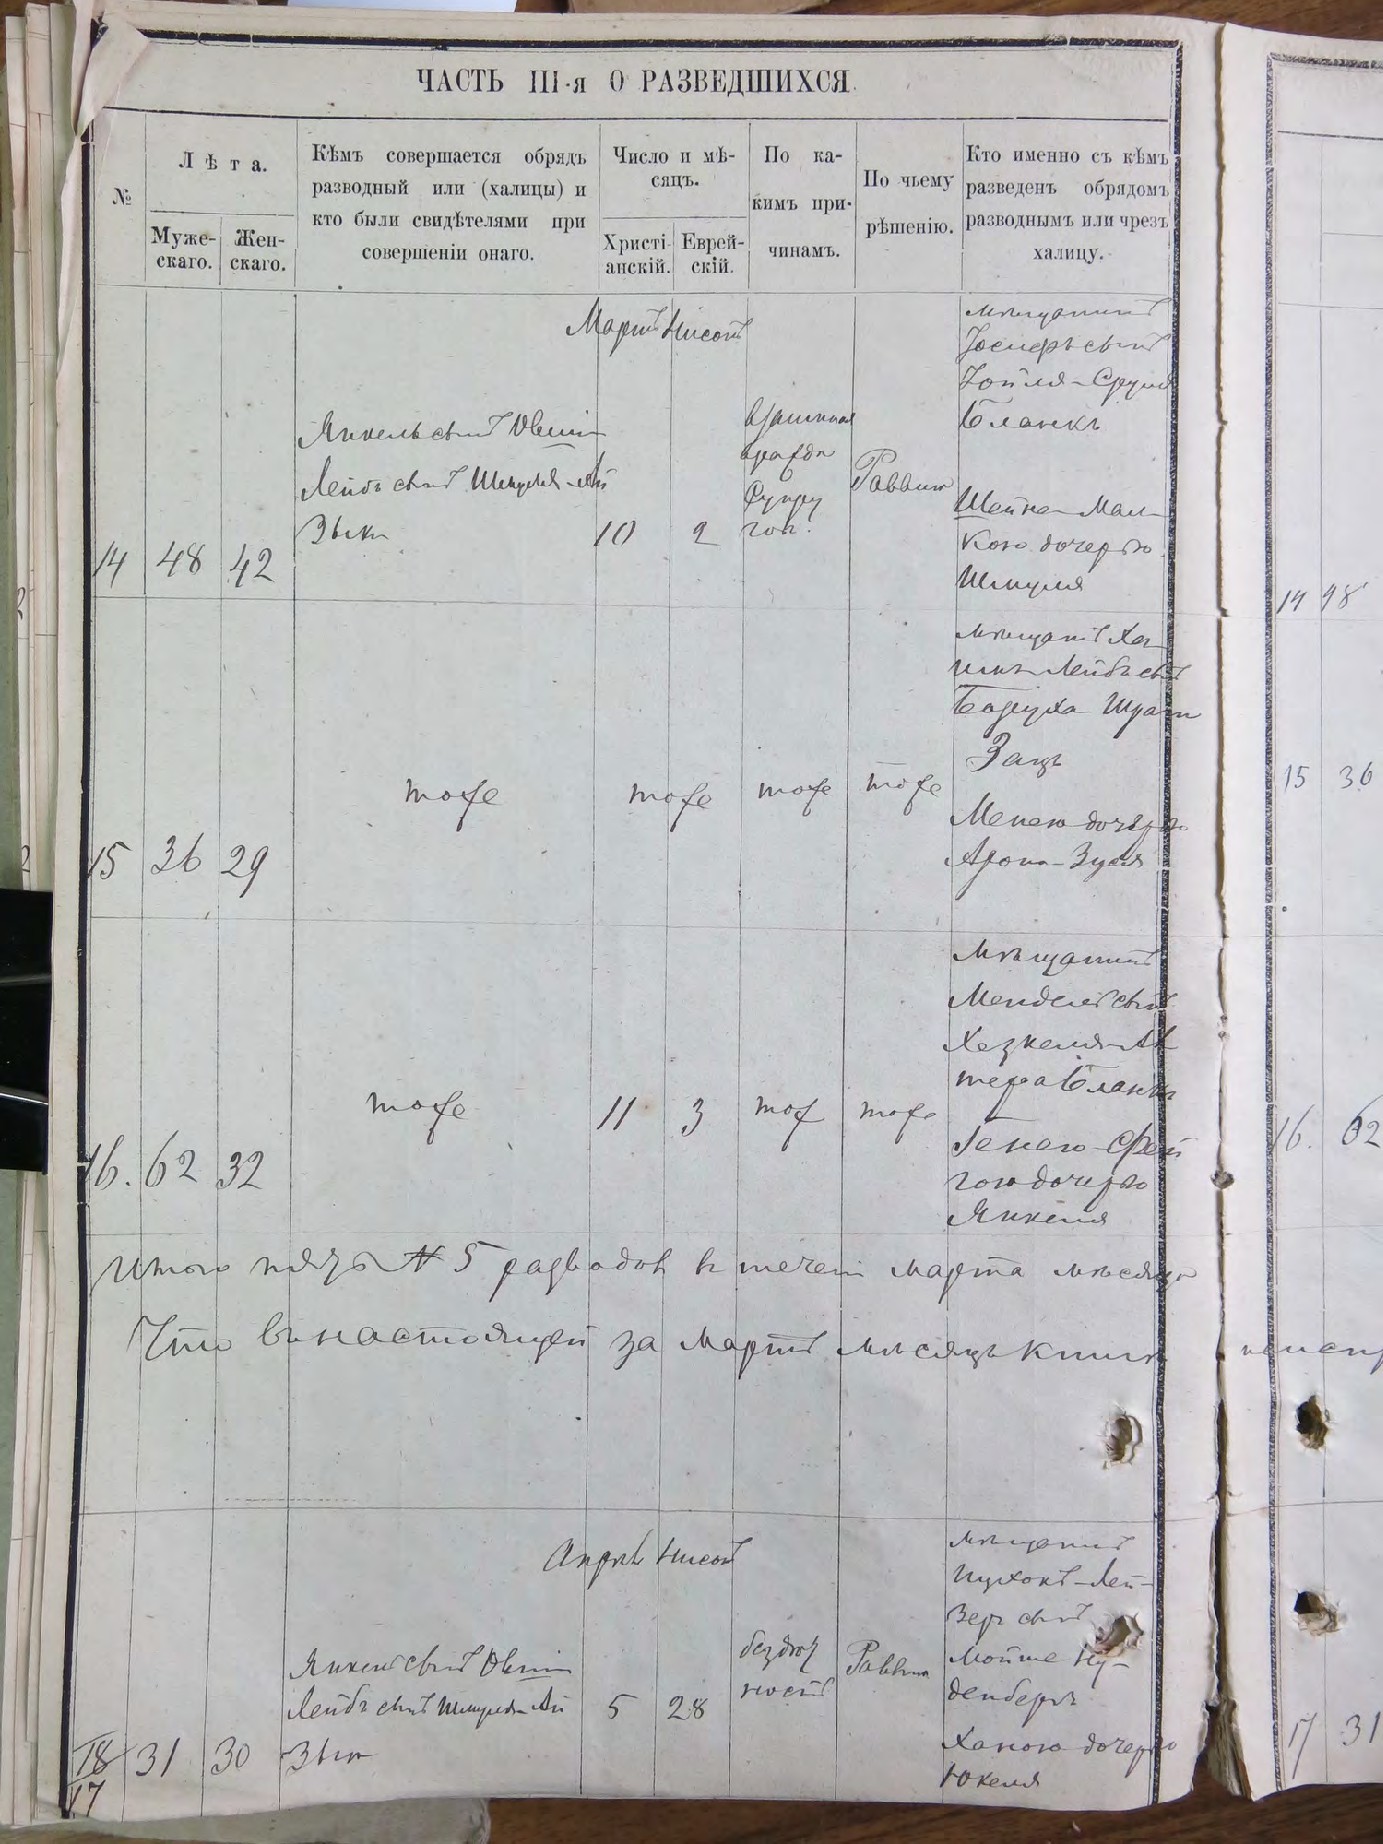 ЧАСТЬ III-я О РАЗВЕДШИХСЯ.
№
Лѣта.
Муже-
скаго.
Жен-
скаго.
Кѣмъ совершается обрядъ
разводный или (халицы) и
кто были свидѣтелями при
совершеніи онаго.
Число и мѣ-
сяцъ.
Христі-
анскій.
Еврей-
скій.
По ка-
кимъ при-
чинамъ.
По чьему
рѣшенію.
Кто именно съ кѣмъ
разведенъ обрядомъ
разводнымъ или чрезъ
халицу.
Мартъ Нисонъ
14 48 42
Янкель сынъ
Лейбъ сынъ Шмуля
10 2
взаимная
вражда
Супру
говъ.
Раввин
мѣщанинъ
Іосифъ сынъ
Іойля-Сруля
Бланкъ
Шейна-Мал
кою дочерью
Шмуля
15 36 29
тоже
тоже
тоже
тоже
мѣщанинъ Ха
Лейбъ сынъ
Баруха
Зацъ
Менею дочерью
Арона-Зуся
16. 62 32
тоже
11 3
тож
тоже
мѣщанинъ
Мендель сынъ
Хезкеля-Ал
тера Бланкъ
Генею-Фей
гою дочерью
Янкеля
Итого № 5 разводов въ течен марта мѣсяца
Что в настоящей за Мартъ мѣсяцъ книгѣ
Апрель Нисонъ
18
17
31 30
Янкель сынъ
Лейбъ сынъ Шмуля
5 28
бездѣт
ность
Раввин
мѣщанинъ
Нухонъ-Лей-
зеръ сынъ
Мойше Ну-
денберъ
Ханою дочерью
Юкеля
14 48
15 36
16. 62
17 31